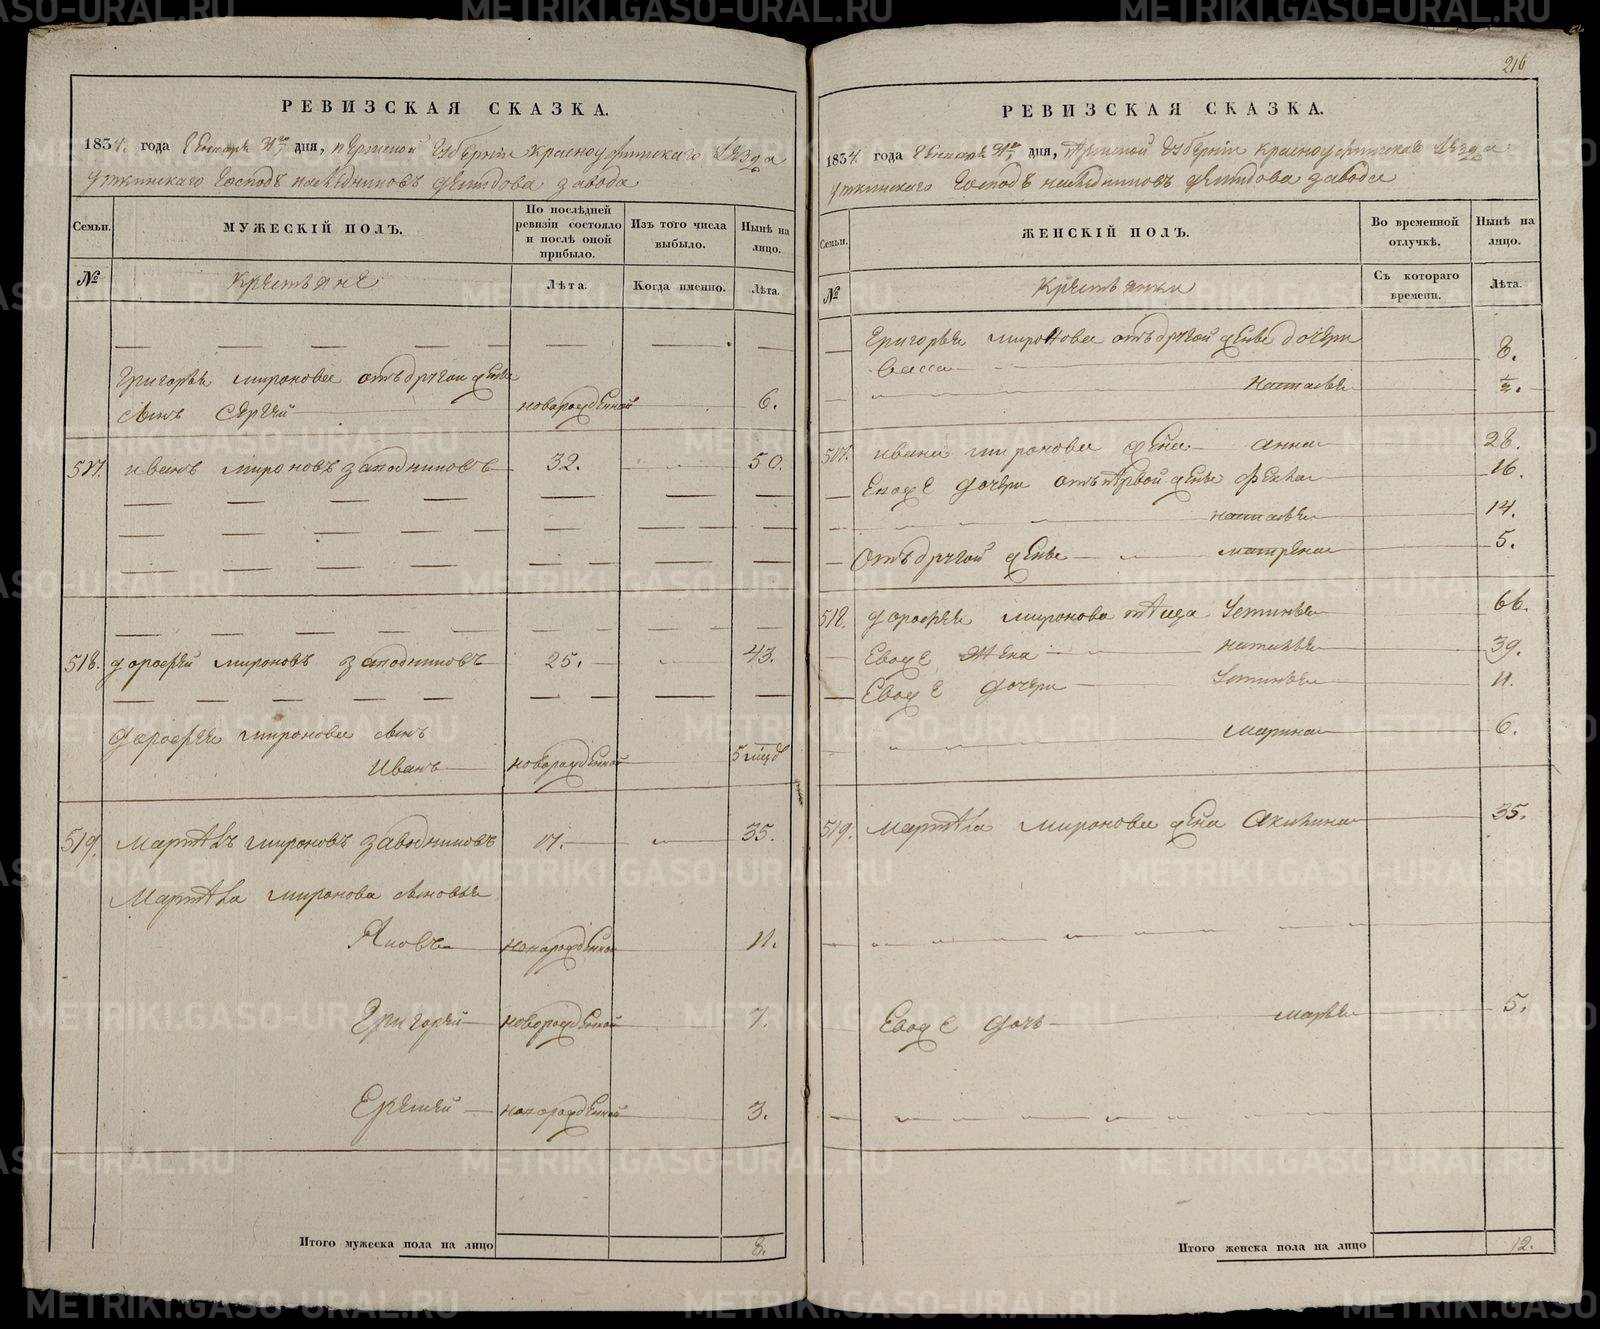 РЕВИЗСКАЯ СКАЗКА.
1834. года дня, пермской Губернiи красноуфимскаго уѣзда
уткинскаго Господъ наслѣдниковъ демидова завода
Семьи.
МУЖЕСКIЙ ПОЛЪ.
По послѣдней ревизiи состояло и послѣ оной прибыло.
Изъ того числа выбыло.
Нынѣ на лицо.
№
Крестьяне
Лѣта.
Когда именно.
Лѣта.
Григорья миронова отъ другой жены
сынъ Сергей новорожденной 6.
517. иванъ мироновъ заводчиковъ 32. 50.
518. дорофей мироновъ 25. 43.
дорофея миронова сынъ
Иванъ новорожденной
519. мироновъ 17. 35.
миронова сыновья
Яковъ новорожденной 11.
Григорей новорожденной 7.
Еремей новорожденной 3.
Итого мужеска пола на лицо 8.
216
РЕВИЗСКАЯ СКАЗКА.
1834. года дня, Пермской Губернiи красноуфимскаго уѣзда
уткинскаго Господъ наслѣдниковъ демидова завода
Семьи.
ЖЕНСКIЙ ПОЛЪ.
Во временной отлучкѣ.
Нынѣ на лицо.
№
Крестьянки
Съ котораго времени.
Лѣта.
Григорья миронова отъ другой жены дочери
Васса 8.
наталья ½.
517. ивана миронова жена анна 28.
Еводже дочери отъ первой жены 16.
наталья 14.
Отъ другой жены матрена 5.
518. дорофея миронова Устинья 66.
Еводже жена наталья 39.
Еводже дочери Устинья 11.
марина 6.
519. миронова жена Акилина 35.
Еводже дочь марья 5.
Итого женска пола на лицо 12.
METRIKI.GASO-URAL.RU